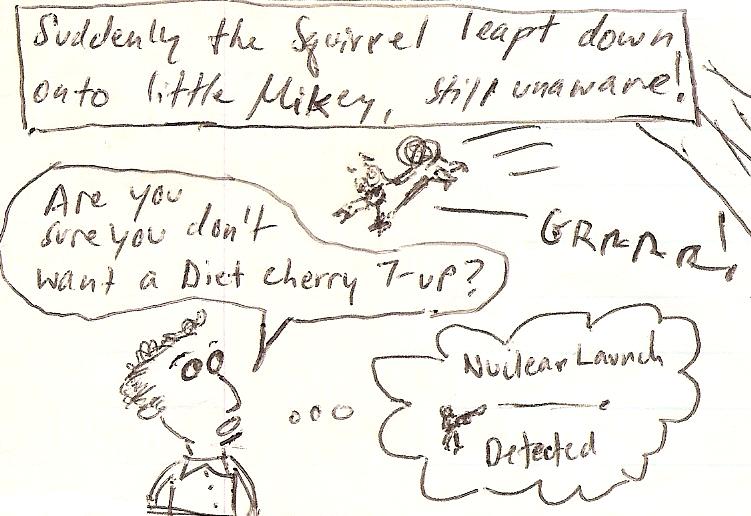 Suddenly the Squirrel leapt down
onto little Mikey, still unaware!
GRRRR!
Are you
sure you don't
want a Diet cherry 7-up?
Nuclear Launch
Detected